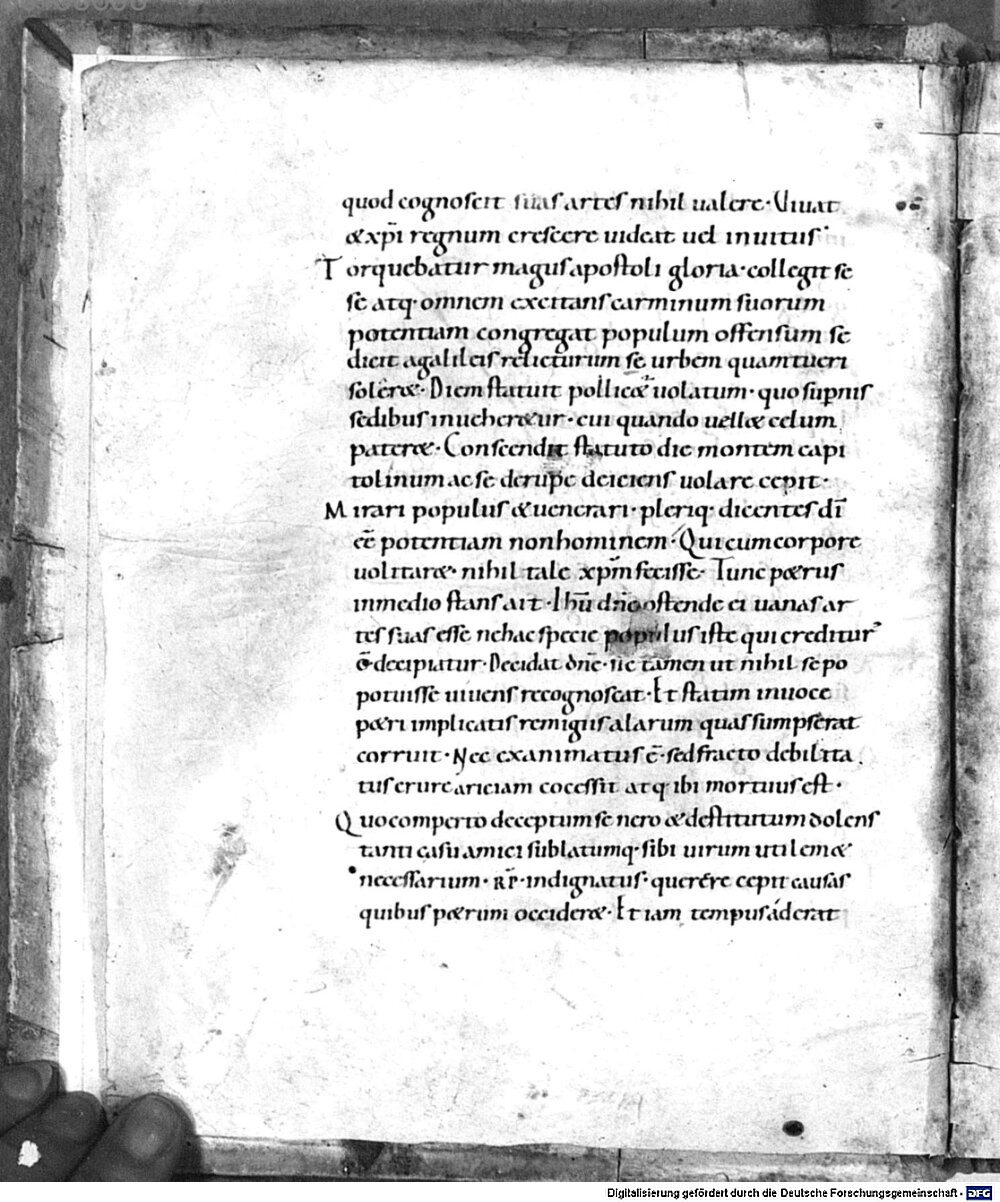 quod cognoscit suas artes nihil ualere· Viuat
& xp̄i regnum crescere uideat uel inuitus·
Torquebatur magus apostoli gloria· collegit se
se atq· omnem excitans carminum suorum
potentiam congregat populum offensum se
dicit agalileis relicturum se urbem quam tueri
soler&· Diem statuit pollic& uolatum· quo supnis
sedibus inueher&ur· cui quando uell& celum
pater&· Conscendit statuto die montem capi
tolinum ac se derupe deiciens uolare cepit·
Mirari populus & uenerari· pleriq· dicentes dī
eē potentiam non hominem· Qui cum corpore
uolitar&· nihil tale xp̄m fecisse· Tunc p&rus
in medio stans ait· Ihū dn̄e ostende ei uanas ar
tes suas esse ne hac specie populus iste qui creditur
decipiatur· Decidat dn̄e· sic tamen ut nihil se po
potuisse uiuens recognoscat· Et statim in uoce
p&ri implicatis remigiis alarum quas sumpserat
corruit· Nec exanimatus ē· sed fracto debilita
tus crure ariciam cocessit atq ibi mortuus est·
Quo comperto deceptum se nero & destitutum dolens
tanti casu amici sublatumq· sibi uirum utilem &
necessarium· RP̄· indignatus· querere cepit causas
quibus p&rum occider&· Et iam tempus aderat
Digitalisierung gefördert durch die Deutsche Forschungsgemeinschaft - DFG